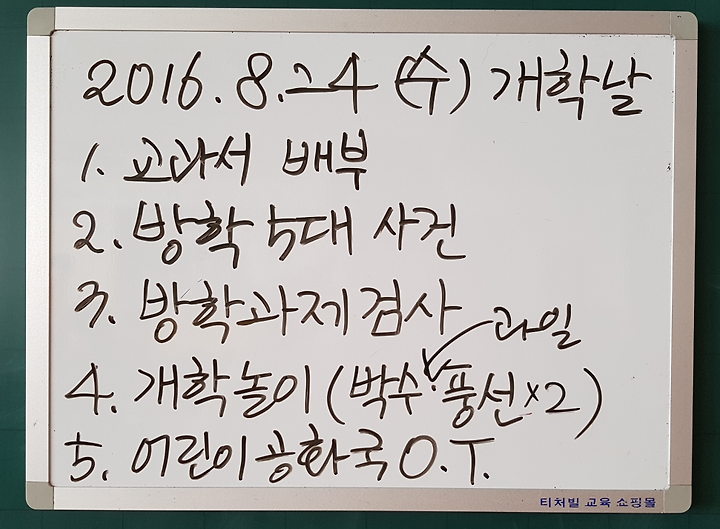 2016. 8. 24 (수) 개학날
1. 교과서 배부
2. 방학 5대 사건
3. 방학과제검사
과일
4. 개학놀이 (박수·풍선×2)
5. 어린이공화국 O.T.
티처빌 교육 쇼핑몰